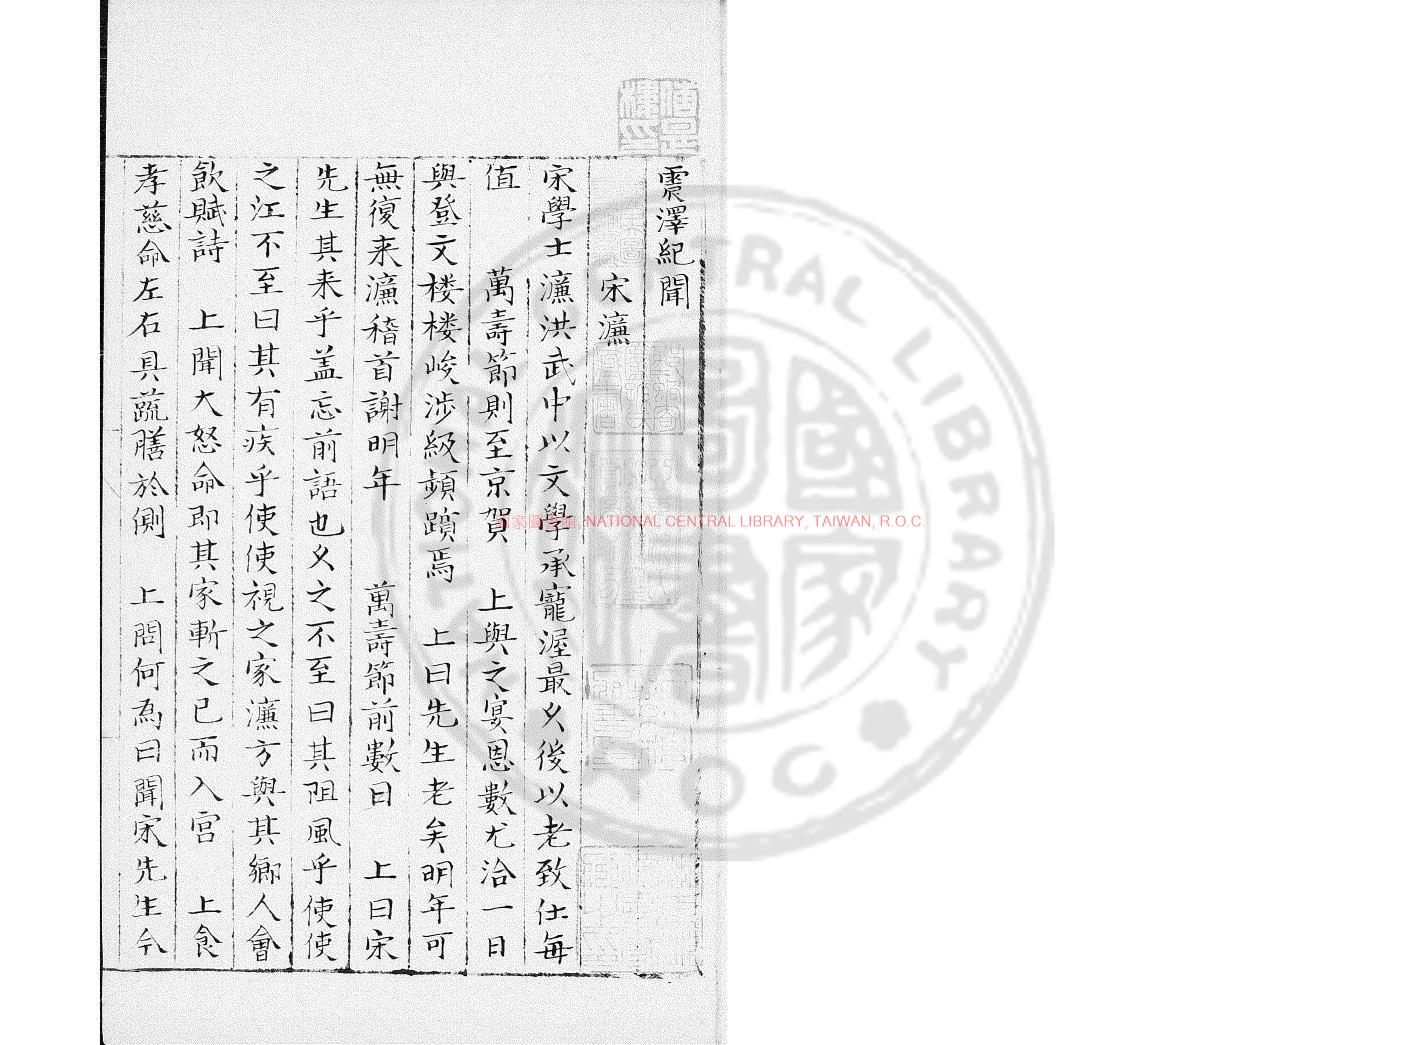 震澤紀聞
宋濂
宋學士濂洪武中以文學承寵渥最久後以老致仕每
值 萬壽節則至京賀 上與之宴恩數尤洽一日
與登文楼楼峻涉級頻躓焉 上曰先生老矣明年可
無復来濂稽首謝明年 萬壽節前數日 上曰宋
先生其来乎盖忘前語也久之不至曰其阻風乎使使
之江不至曰其有疾乎使使視之家濂方與其鄉人會
飲賦詩 上聞大怒命即其家斬之已而入宫 上食
孝慈命左右具蔬膳於側 上問何為曰聞宋先生今
國家圖書館, NATIONAL CENTRAL LIBRARY, TAIWAN, R.O.C.